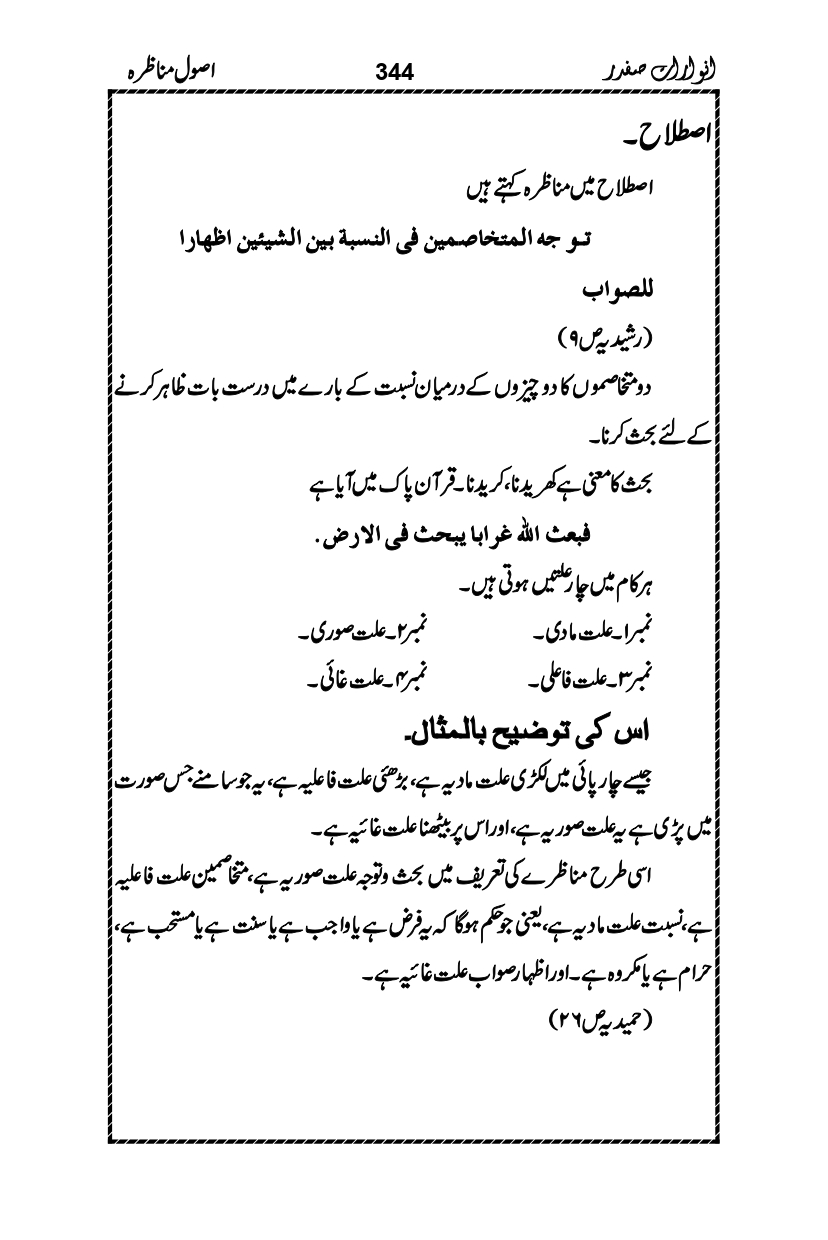 انوارات صفدر 344 اصول مناظرہ
اصطلاح۔
اصطلاح میں مناظرہ کہتے ہیں
تو جه المتخاصمین فی النسبة بین الشیئین اظهارا
للصواب
(رشیدیہ ص۹)
دو متخاصموں کا دو چیزوں کے درمیان نسبت کے بارے میں درست بات ظاہر کرنے
کے لئے بحث کرنا۔
بحث کا معنی ہے کھریدنا، کریدنا۔ قرآن پاک میں آیا ہے
فبعث الله غرابا یبحث فی الارض.
ہر کام میں چار علتیں ہوتی ہیں۔
نمبر۱۔ علت مادی۔ نمبر۲۔ علت صوری۔
نمبر۳۔ علت فاعلی۔ نمبر۴۔ علت غائی۔
اس کی توضیح بالمثال۔
جیسے چارپائی میں لکڑی علت مادیہ ہے، بڑھئی علت فاعلیہ ہے، یہ جو سامنے جس صورت
میں پڑی ہے یہ علت صوریہ ہے، اور اس پر بیٹھنا علت غائیہ ہے۔
اسی طرح مناظرے کی تعریف میں بحث وتوجہ علت صوریہ ہے، متخاصمین علت فاعلیہ
ہے، نسبت علت مادیہ ہے، یعنی جو حکم ہوگا کہ یہ فرض ہے یا واجب ہے یا سنت ہے یا مستحب ہے،
حرام ہے یا مکروہ ہے۔ اور اظہار صواب علت غائیہ ہے۔
(حمیدیہ ص۲۶)